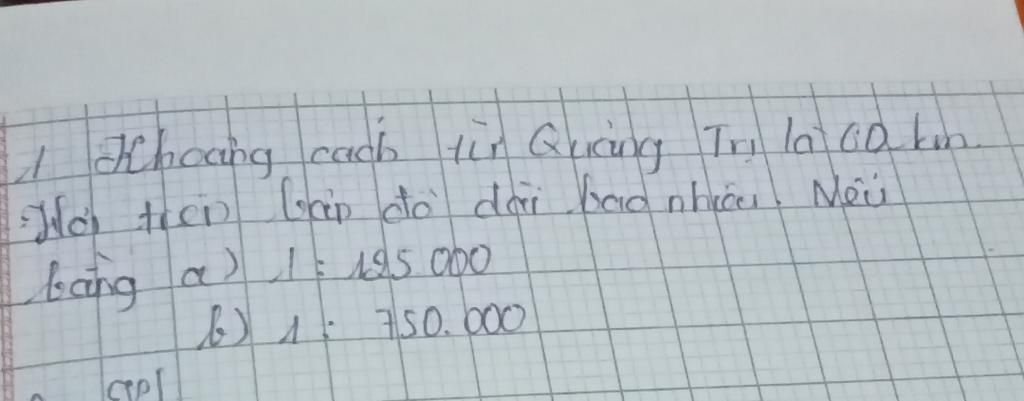 1 Khoảng cách từ Quảng Trị là 60 km.
Hỏi trên bản đồ dài bao nhiêu. Nếu
bằng a) 1 : 195.000
b) 1 : 750.000